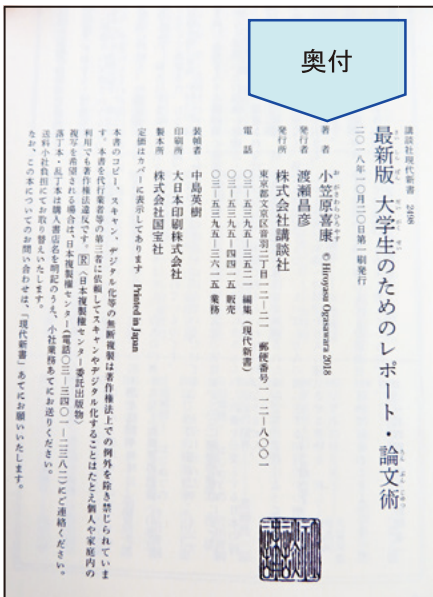 奥付
講談社現代新書
最新版 大学生のためのレポート・論文術
さいしんばん だいがくせい ろんぶんじゅつ
二〇一八年一〇月二〇日第一刷発行
著者 小笠原喜康 © Hiroyasu Ogasawara 2018
おがさわらひろやす
発行者 渡瀬昌彦
発行所 株式会社講談社
東京都文京区音羽二丁目一二―二一 郵便番号一一二―八〇〇一
電話 〇三―五三九五―三五二一 編集(現代新書)
〇三―五三九五―四四一五 販売
〇三―五三九五―三六一五 業務
装幀者 中島英樹
印刷所 大日本印刷株式会社
製本所 株式会社国宝社
定価はカバーに表示してあります Printed in Japan
本書のコピー、スキャン、デジタル化等の無断複製は著作権法上での例外を除き禁じられていま
す。本書を代行業者等の第三者に依頼してスキャンやデジタル化することはたとえ個人や家庭内の
利用でも著作権法違反です。Ⓡ〈日本複製権センター委託出版物〉
複写を希望される場合は、日本複製権センター(電話〇三―三四〇一―二三八二)にご連絡ください。
落丁本・乱丁本は購入書店名を明記のうえ、小社業務あてにお送りください。
送料小社負担にてお取り替えいたします。
なお、この本についてのお問い合わせは、「現代新書」あてにお願いいたします。